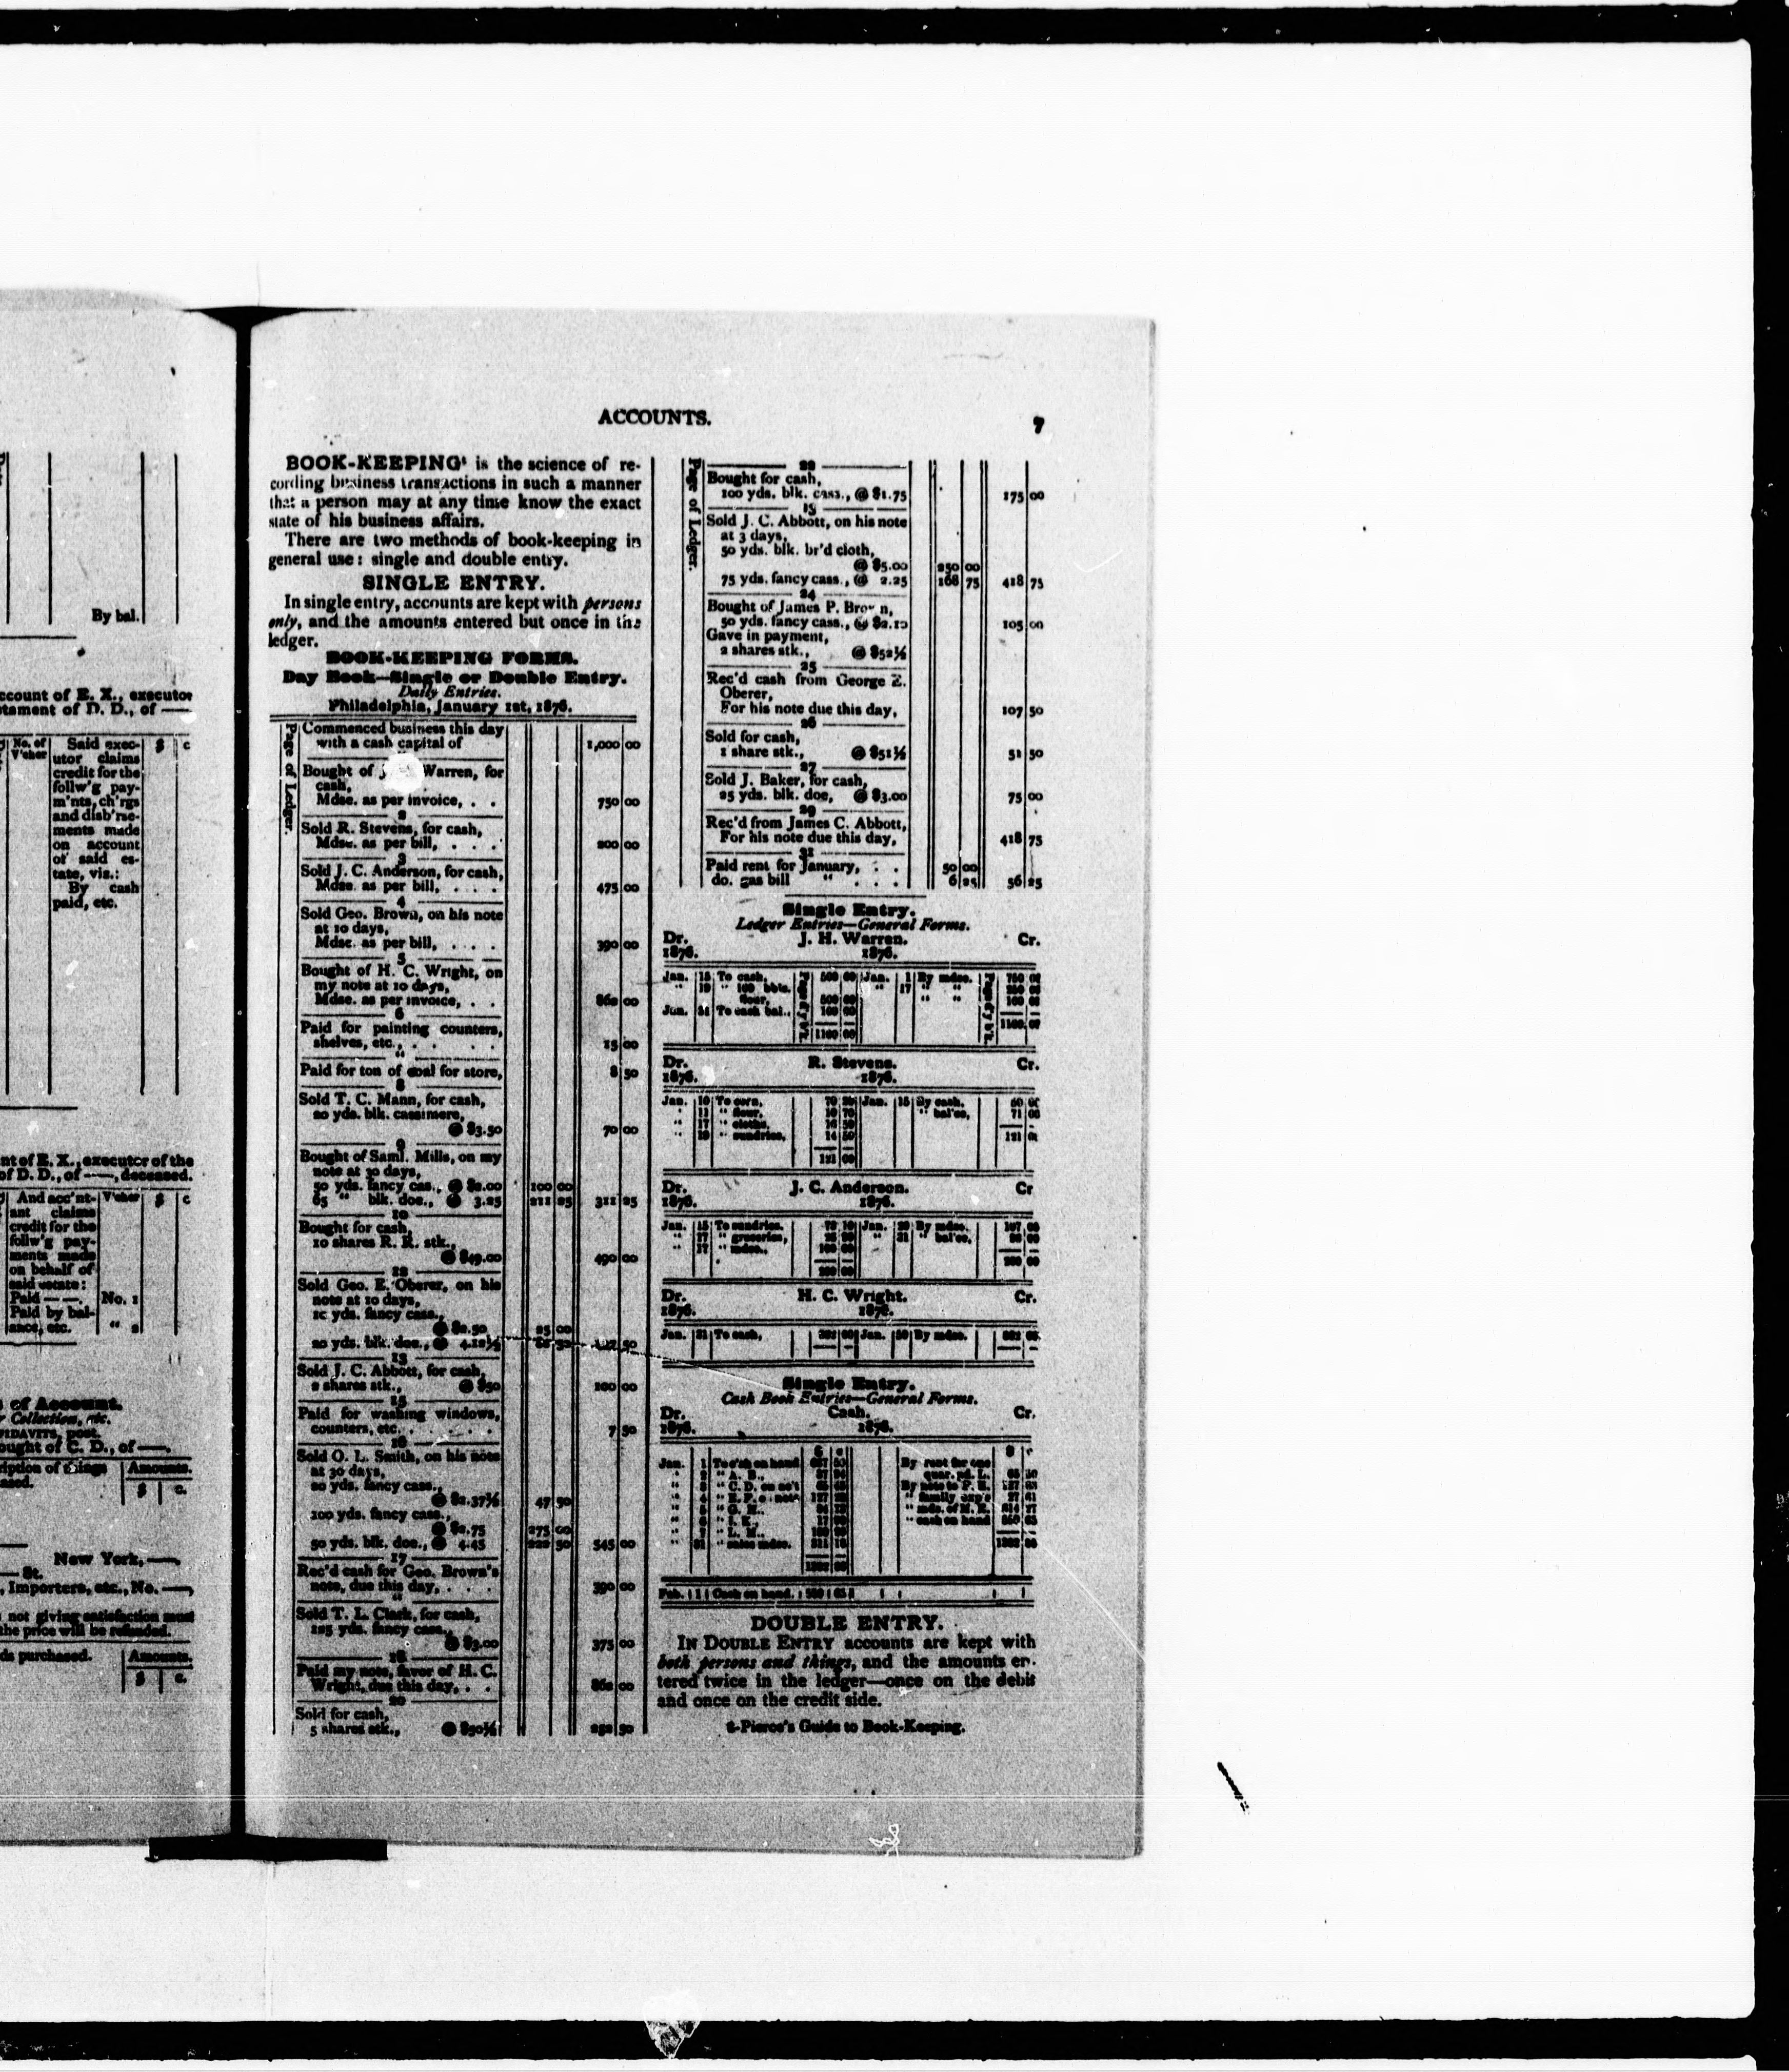 By bal.
ccount of E. X., executor
tament of D. D., of —
No. of
V'cher
Said exec-
utor claims
credit for the
follw'g pay-
m'nts, ch'rgs
and disb'rse-
ments made
on account
of said es-
tate, viz.:
By cash
paid, etc.
$ c
nt of E. X., executor of the
of D. D., of —, deceased.
And acc'nt-
ant claims
credit for the
follw'g pay-
ments made
on behalf of
said estate:
Paid — —.
Paid by bal-
ance, etc.
V'cher
No. 1
" 2
$ c
of Account.
r Collection, etc.
FIDAVITS, post.
ought of C. D., of —.
ription of things
ased.
Amounts.
$ c.
New York, —.
— St.
, Importers, etc., No. —,
not giving satisfaction must
the price will be refunded.
ds purchased.
Amounts.
$ c.
ACCOUNTS.
7
BOOK-KEEPING¹ is the science of re-
cording business transactions in such a manner
that a person may at any time know the exact
state of his business affairs.
There are two methods of book-keeping in
general use: single and double entry.
SINGLE ENTRY.
In single entry, accounts are kept with persons
only, and the amounts entered but once in the
ledger.
BOOK-KEEPING FORMS.
Day Book—Single or Double Entry.
Daily Entries.
Philadelphia, January 1st, 1876.
Page of Ledger.
Commenced business this day
with a cash capital of 1,000 00
Bought of Warren, for
cash,
Mdse. as per invoice, . . 750 00
2
Sold R. Stevens, for cash,
Mdse. as per bill, . . . 200 00
3
Sold J. C. Anderson, for cash,
Mdse. as per bill, . . . . 475 00
4
Sold Geo. Brown, on his note
at 10 days,
Mdse. as per bill, . . . . 390 00
5
Bought of H. C. Wright, on
my note at 10 days,
Mdse. as per invoice, . . 860 00
6
Paid for painting counters,
shelves, etc., . . . . 15 00
"
Paid for ton of coal for store, 8 50
8
Sold T. C. Mann, for cash,
20 yds. blk. cassimere,
@ $3.50 70 00
9
Bought of Saml. Mills, on my
note at 30 days,
50 yds. fancy cas., @ $2.00 100 00
65 " blk. doe., @ 3.25 211 25 311 25
10
Bought for cash,
10 shares R. R. stk.,
@ $49.00 490 00
12
Sold Geo. E. Oberer, on his
note at 10 days,
10 yds. fancy cass.,
@ $2.50 25 00
20 yds. blk. doe., @ 4.12½ 82 50 107 50
13
Sold J. C. Abbott, for cash,
2 shares stk., @ $50 100 00
15
Paid for washing windows,
counters, etc. . . . . . 7 50
16
Sold O. L. Smith, on his note
at 30 days,
20 yds. fancy cass.,
@ $2.37½ 47 50
100 yds. fancy cass.,
@ $2.75 275 00
50 yds. blk. doe., @ 4.45 222 50 545 00
17
Rec'd cash for Geo. Brown's
note, due this day, . . . 390 00
"
Sold T. L. Clark, for cash,
125 yds. fancy cass.,
@ $3.00 375 00
18
Paid my note, favor of H. C.
Wright, due this day, . . 860 00
20
Sold for cash,
5 shares stk., @ $50½ 252 50
Page of Ledger.
22
Bought for cash,
100 yds. blk. cass., @ $1.75 175 00
Sold J. C. Abbott, on his note
at 3 days,
50 yds. blk. br'd cloth,
@ $5.00 250 00
75 yds. fancy cass., @ 2.25 168 75 418 75
24
Bought of James P. Brown,
50 yds. fancy cass., @ $2.10 105 00
Gave in payment,
2 shares stk., @ $52½
25
Rec'd cash from George E.
Oberer,
For his note due this day, 107 50
26
Sold for cash,
1 share stk., @ $51½ 51 50
27
Sold J. Baker, for cash,
25 yds. blk. doe, @ $3.00 75 00
29
Rec'd from James C. Abbott,
For his note due this day, 418 75
31
Paid rent for January, . . 50 00
do. gas bill " . . . 6 25 56 25
Single Entry.
Ledger Entries—General Forms.
Dr. J. H. Warren. Cr.
1876. 1876.
Jan. 15 To cash, 500 00 Jan. 1 By mdse. 750 00
" 19 " 100 bbls. " 17 " "
flour, 500 00 " " 100 00
Jan. 31 To cash bal., 100 00
1100 00 1100 00
Dr. R. Stevens. Cr.
1876. 1876.
Jan. 10 To corn, Jan. 15 By cash, 50 00
" 11 " flour, 10 70 " bal'ce, 71 00
" 17 " cloths,
" 19 " sundries, 14 50 121 00
121 00
Dr. J. C. Anderson. Cr
1876. 1876.
Jan. 15 To sundries, Jan. By mdse.
" 17 " groceries, " 31 " bal'ce,
" 17 " mdse.,
Dr. H. C. Wright. Cr.
1876. 1876.
Jan. 31 To cash, Jan. By mdse.
Single Entry.
Cash Book Entries—General Forms.
Dr. Cash. Cr.
1876. 1876.
$ c $ c
Jan. 1 To c'sh on hand By rent for one
" 2 " A. B., quar. pd. L.
" 3 " C. D. on ac't By note to
" 4 " E. F. note " family exp's
" 5 " G. H., " mds. of
" 6 " I. K., " cash on hand
" 7 " L. M.,
" 31 " sales mdse.
Feb. 1 Cash on hand.
DOUBLE ENTRY.
IN DOUBLE ENTRY accounts are kept with
both persons and things, and the amounts en-
tered twice in the ledger—once on the debit
and once on the credit side.
1-Pierce's Guide to Book-Keeping.